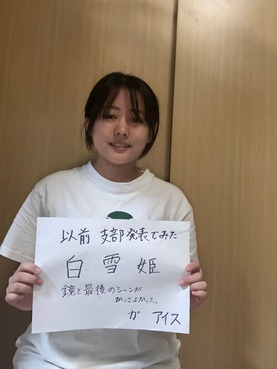 以前 支部発表でみた
白雪姫
鏡と最後のシーンが
かっこよかった。
が アイス